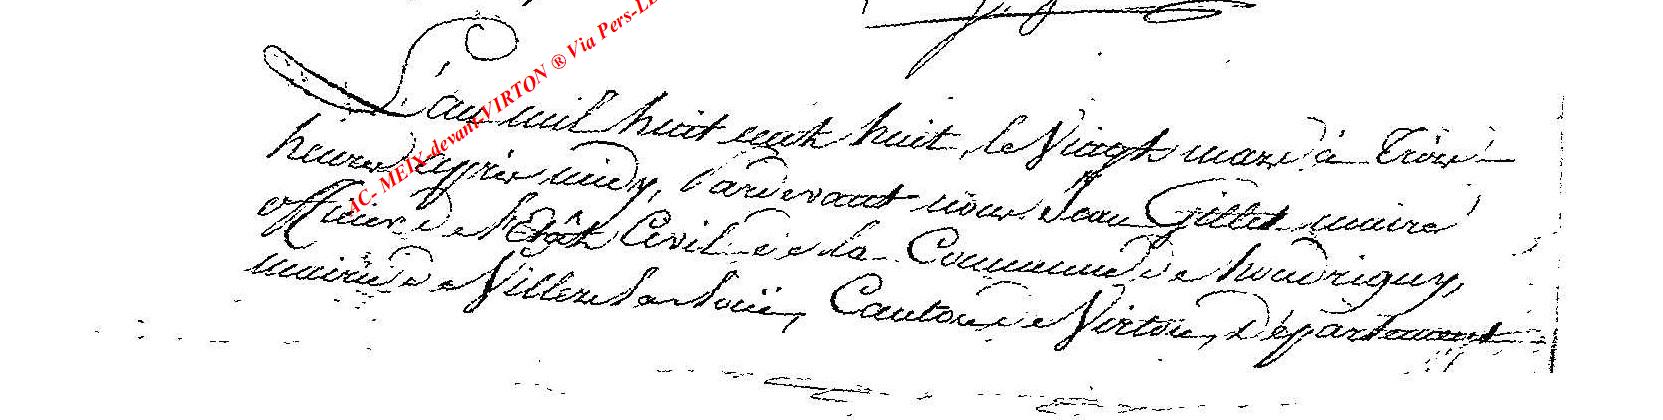 AC- MEIX-devant-VIRTON ® Via Pers-LE
L'an mil huit cent huit, le Vingt mars à trois
heures après midy, Pardevant nous Jean Gillet maire
officier de l'Etât Civil de la Commune de houdrigny,
mairie de Villers la loüe, Canton de Virton, Département